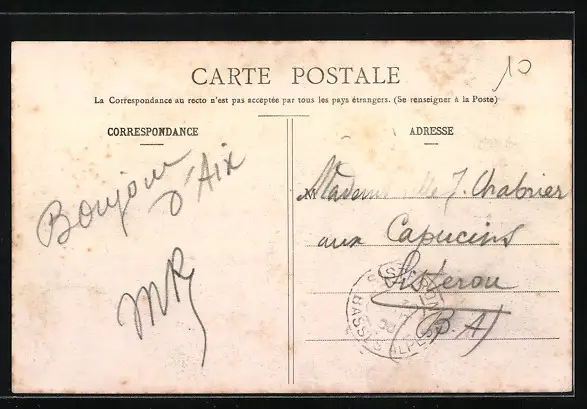 10
CARTE POSTALE
La Correspondance au recto n'est pas acceptée par tous les pays étrangers. (Se renseigner à la Poste)
CORRESPONDANCE
Bonjour
d'Aix
MR
ADRESSE
Mademoiselle J. Chabrier
aux Capucins
Sisteron
(B. A)
SISTERON
BASSES ALPES